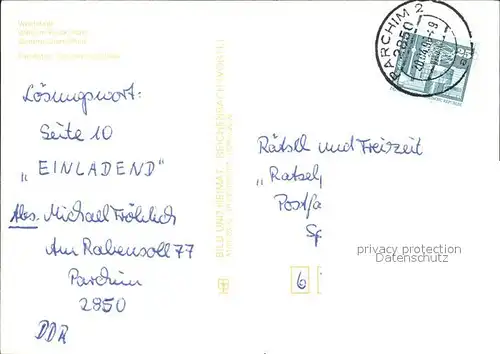 PARCHIM 2
2850
Lösungswort:
Seite 10
„EINLADEND"
Abs. Michael Fröhlich
Am Rabensoll 77
Parchim
2850
DDR
BILD UND HEIMAT REICHENBACH (VOGTL)
Rätsel und Freizeit
„Rätsel
Postfa
Sp
6
privacy protection
Datenschutz